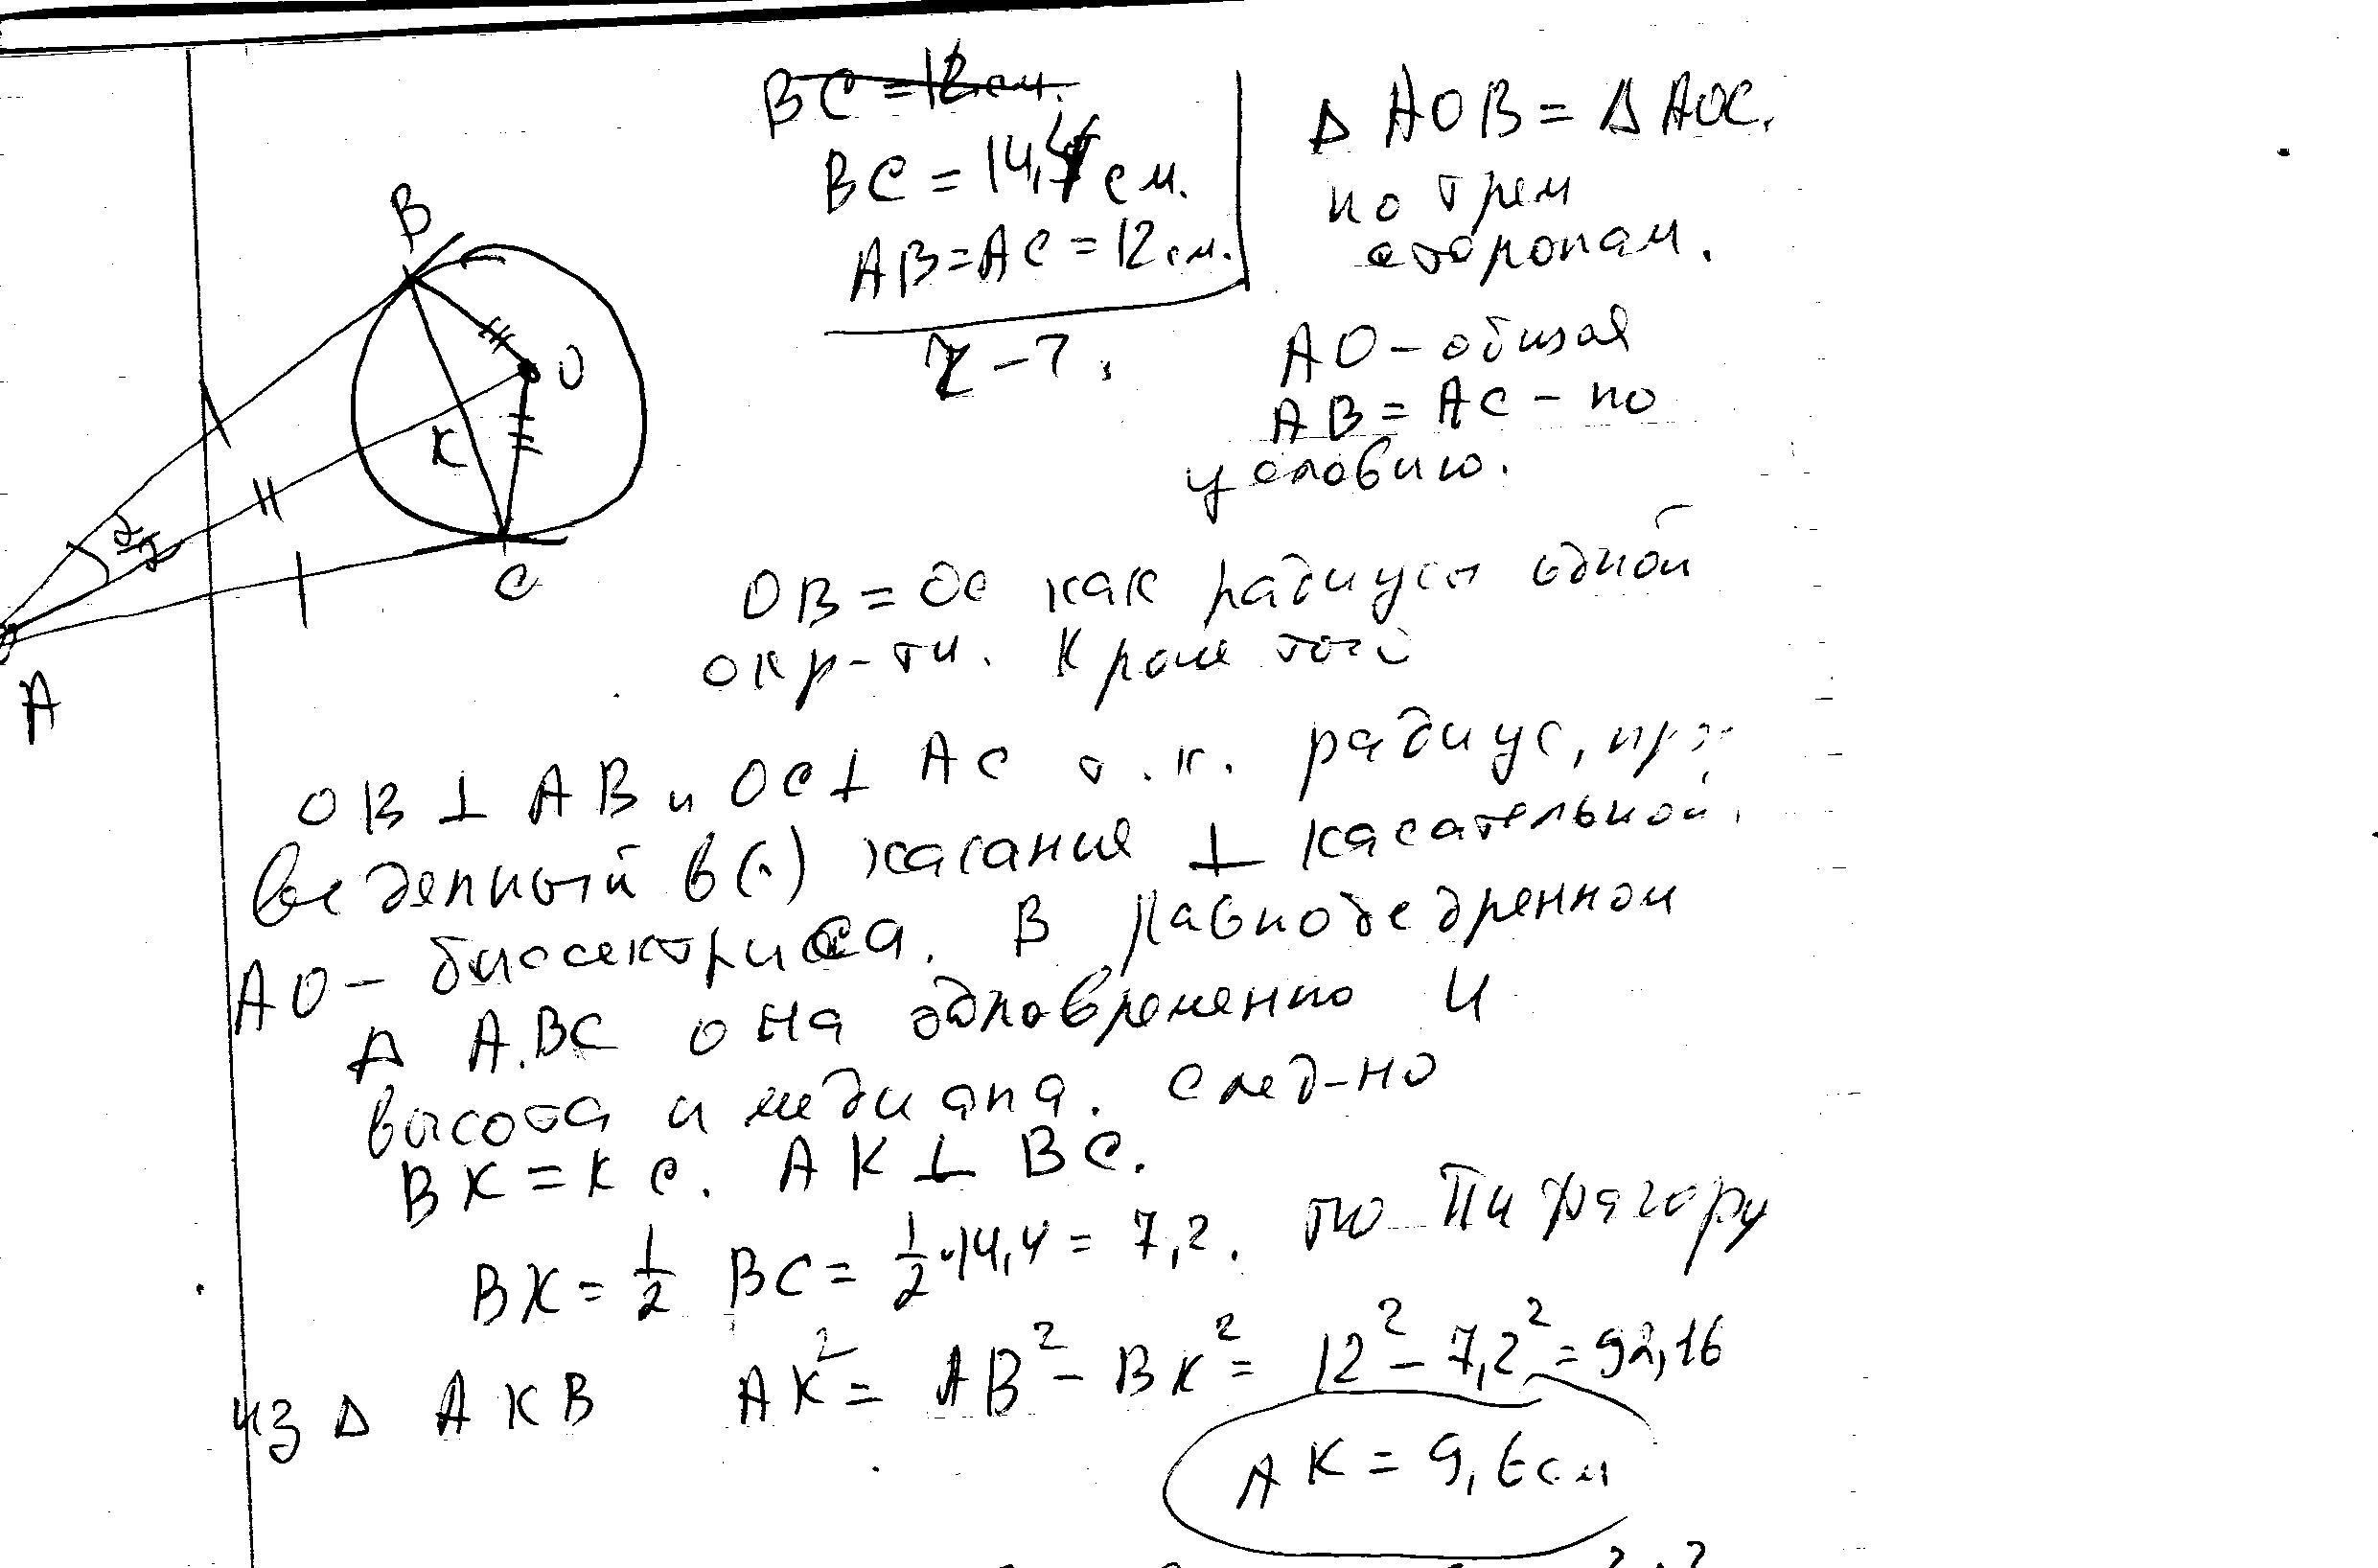 BC = 12 см.
BC = 14,4 см.
AB = AC = 12 см.
r - ?
Δ AOB = Δ AOC.
по трем
сторонам.
AO - общая
AB = AC - по
условию.
B
O
K
C
A
OB = OC как радиусы одной
окр-ти. Кроме того
OB ⊥ AB и OC ⊥ AC т.к. радиус, про
веденный в (·) касания ⊥ касательной.
AO - биссектриса. В равнобедренном
Δ ABC она одновременно и
высота и медиана. След-но
BK = KC. AK ⊥ BC.
BK = 1/2 BC = 1/2 · 14,4 = 7,2. По Пифагору
из Δ AKB AK² = AB² - BK² = 12² - 7,2² = 92,16
AK = 9,6 см